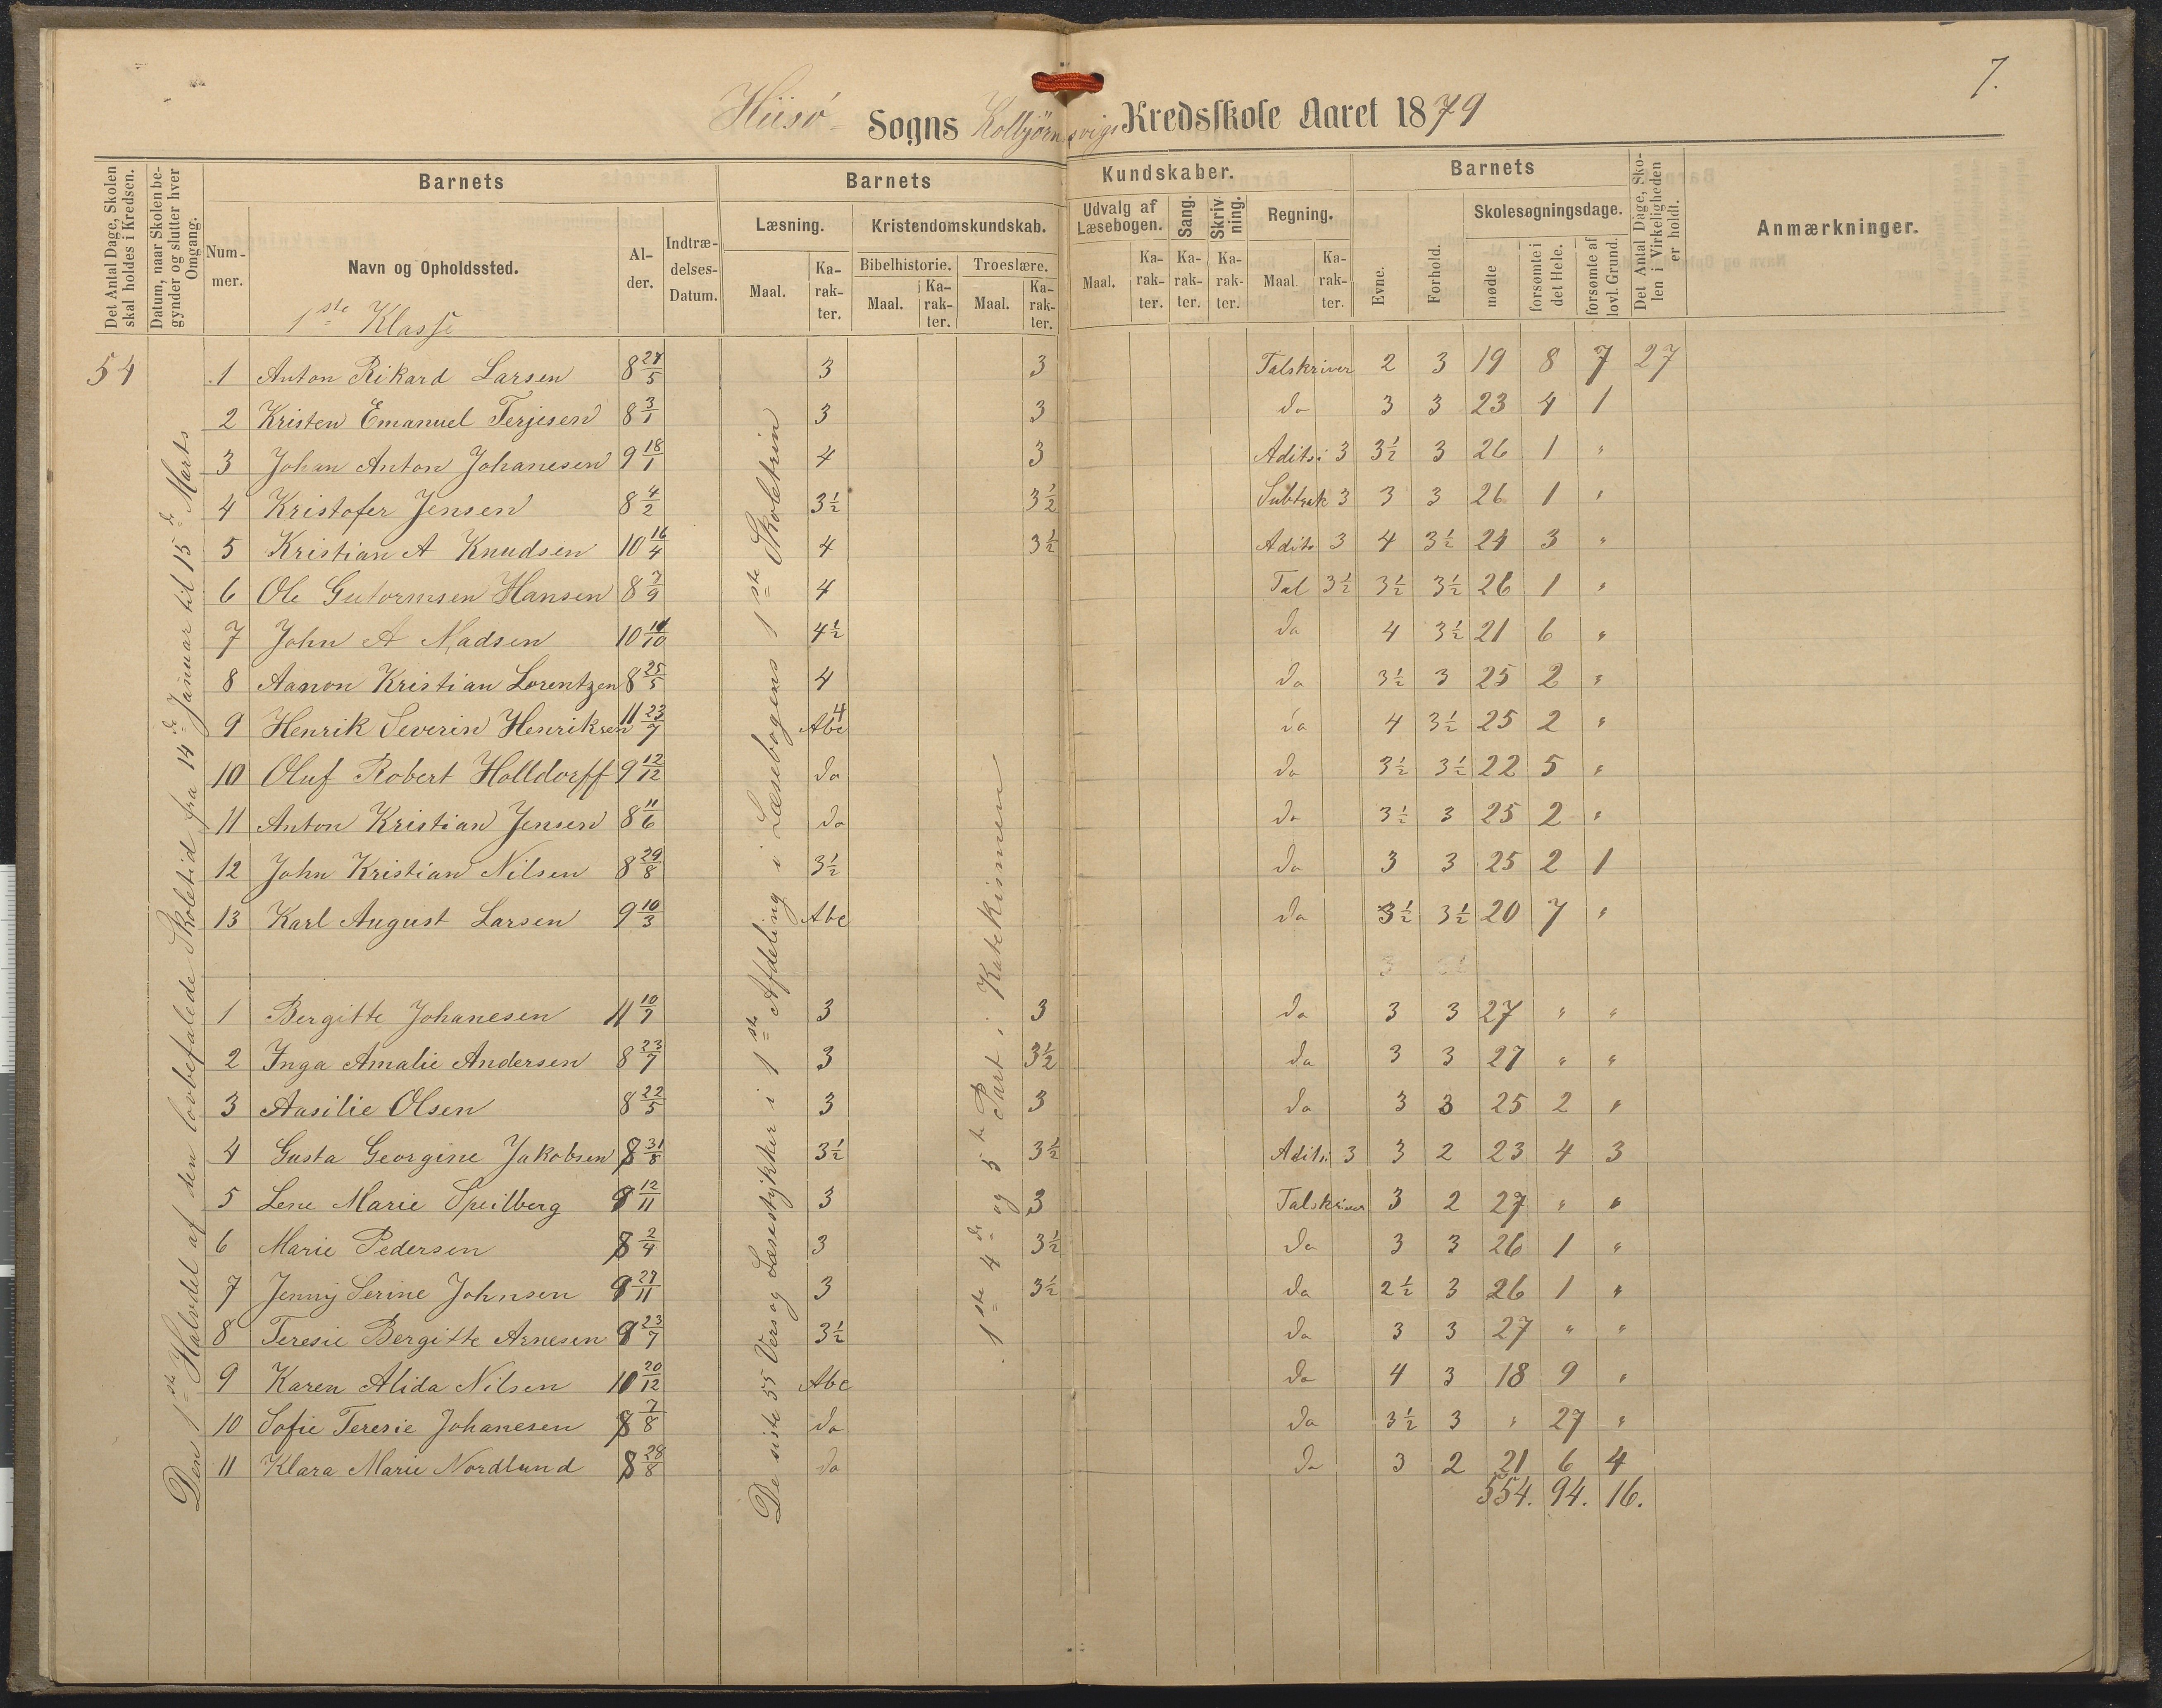 7.
Hisö Sogns Kolbjörnsvigs Kredsskole Aaret 1879
Det Antal Dage, Skolen skal holdes i Kredsen.
Datum, naar Skolen begynder og slutter hver Omgang.
Barnets
Nummer.
Navn og Opholdssted.
Alder.
Indtrædelses-Datum.
Barnets
Kundskaber.
Læsning.
Maal.
Karakter.
Kristendomskundskab.
Bibelhistorie.
Maal.
Karakter.
Troeslære.
Maal.
Karakter.
Udvalg af Læsebogen.
Maal.
Karakter.
Sang.
Karakter.
Skrivning.
Karakter.
Regning.
Maal.
Karakter.
Barnets
Evne.
Forhold.
Skolesøgningsdage.
mødte
forsømte i det Hele.
forsømte af lovl. Grund.
Det Antal Dage, Skolen i Virkeligheden er holdt.
Anmærkninger.
1ste Klasse
54
Den 1ste Halvdel af den lovbefalede Skoletid fra 14de Januar til 15de Marts
De siste 55 Vers og Læsestykker i 1ste Afdeling i Læsebogens 1ste Skoletrin
1ste 4de og 5te Part i Katekismen
1 Anton Rikard Larsen 8 27/5 3 3 Talskriver 2 3 19 8 7 27
2 Kristen Emanuel Terjesen 8 3/1 3 3 do 3 3 23 4 1
3 Johan Anton Johanesen 9 18/1 4 3 Aditsi 3 3½ 3 26 1 "
4 Kristofer Jensen 8 4/2 3½ 3½ Subtrak 3 3 3 26 1 "
5 Kristian A Knudsen 10 16/4 4 3½ Adits 3 4 3½ 24 3 "
6 Ole Gutormsen Hansen 8 7/9 4 Tal 3½ 3½ 3½ 26 1 "
7 John A Madsen 10 /10 4½ do 4 3½ 21 6 "
8 Aanon Kristian Lorentzen 8 25/5 4 do 3½ 3 25 2 "
9 Henrik Severin Henriksen 11 23/7 Abc 4 do 4 3½ 25 2 "
10 Oluf Robert Holldorff 9 12/12 do do 3½ 3½ 22 5 "
11 Anton Kristian Jensen 8 11/6 do do 3½ 3 25 2 "
12 John Kristian Nilsen 8 29/8 3½ do 3 3 25 2 1
13 Karl August Larsen 9 10/3 Abc do 3½ 3½ 20 7 "
1 Bergitte Johanesen 11 10/7 3 3 do 3 3 27 " "
2 Inga Amalie Andersen 8 23/7 3 3½ do 3 3 27 " "
3 Aasilie Olsen 8 22/5 3 3 do 3 3 25 2 "
4 Gusta Georgine Jakobsen 8 31/8 3½ 3½ Aditsi 3 3 2 23 4 3
5 Lene Marie Speilberg 8 12/11 3 3 Talskriver 3 2 27 " "
6 Marie Pedersen 8 2/4 3 3½ do 3 3 26 1 "
7 Jenny Serine Johnsen 9 27/11 3 3½ do 2½ 3 26 1 "
8 Teresie Bergitte Arnesen 9 23/7 3½ do 3 3 27 " "
9 Karen Alida Nilsen 10 20/12 Abc do 4 3 18 9 "
10 Sofie Teresie Johanesen 8 7/8 do do 3½ 3 " 27 "
11 Klara Marie Nordlund 8 28/8 do do 3 2 21 6 4
554. 94. 16.